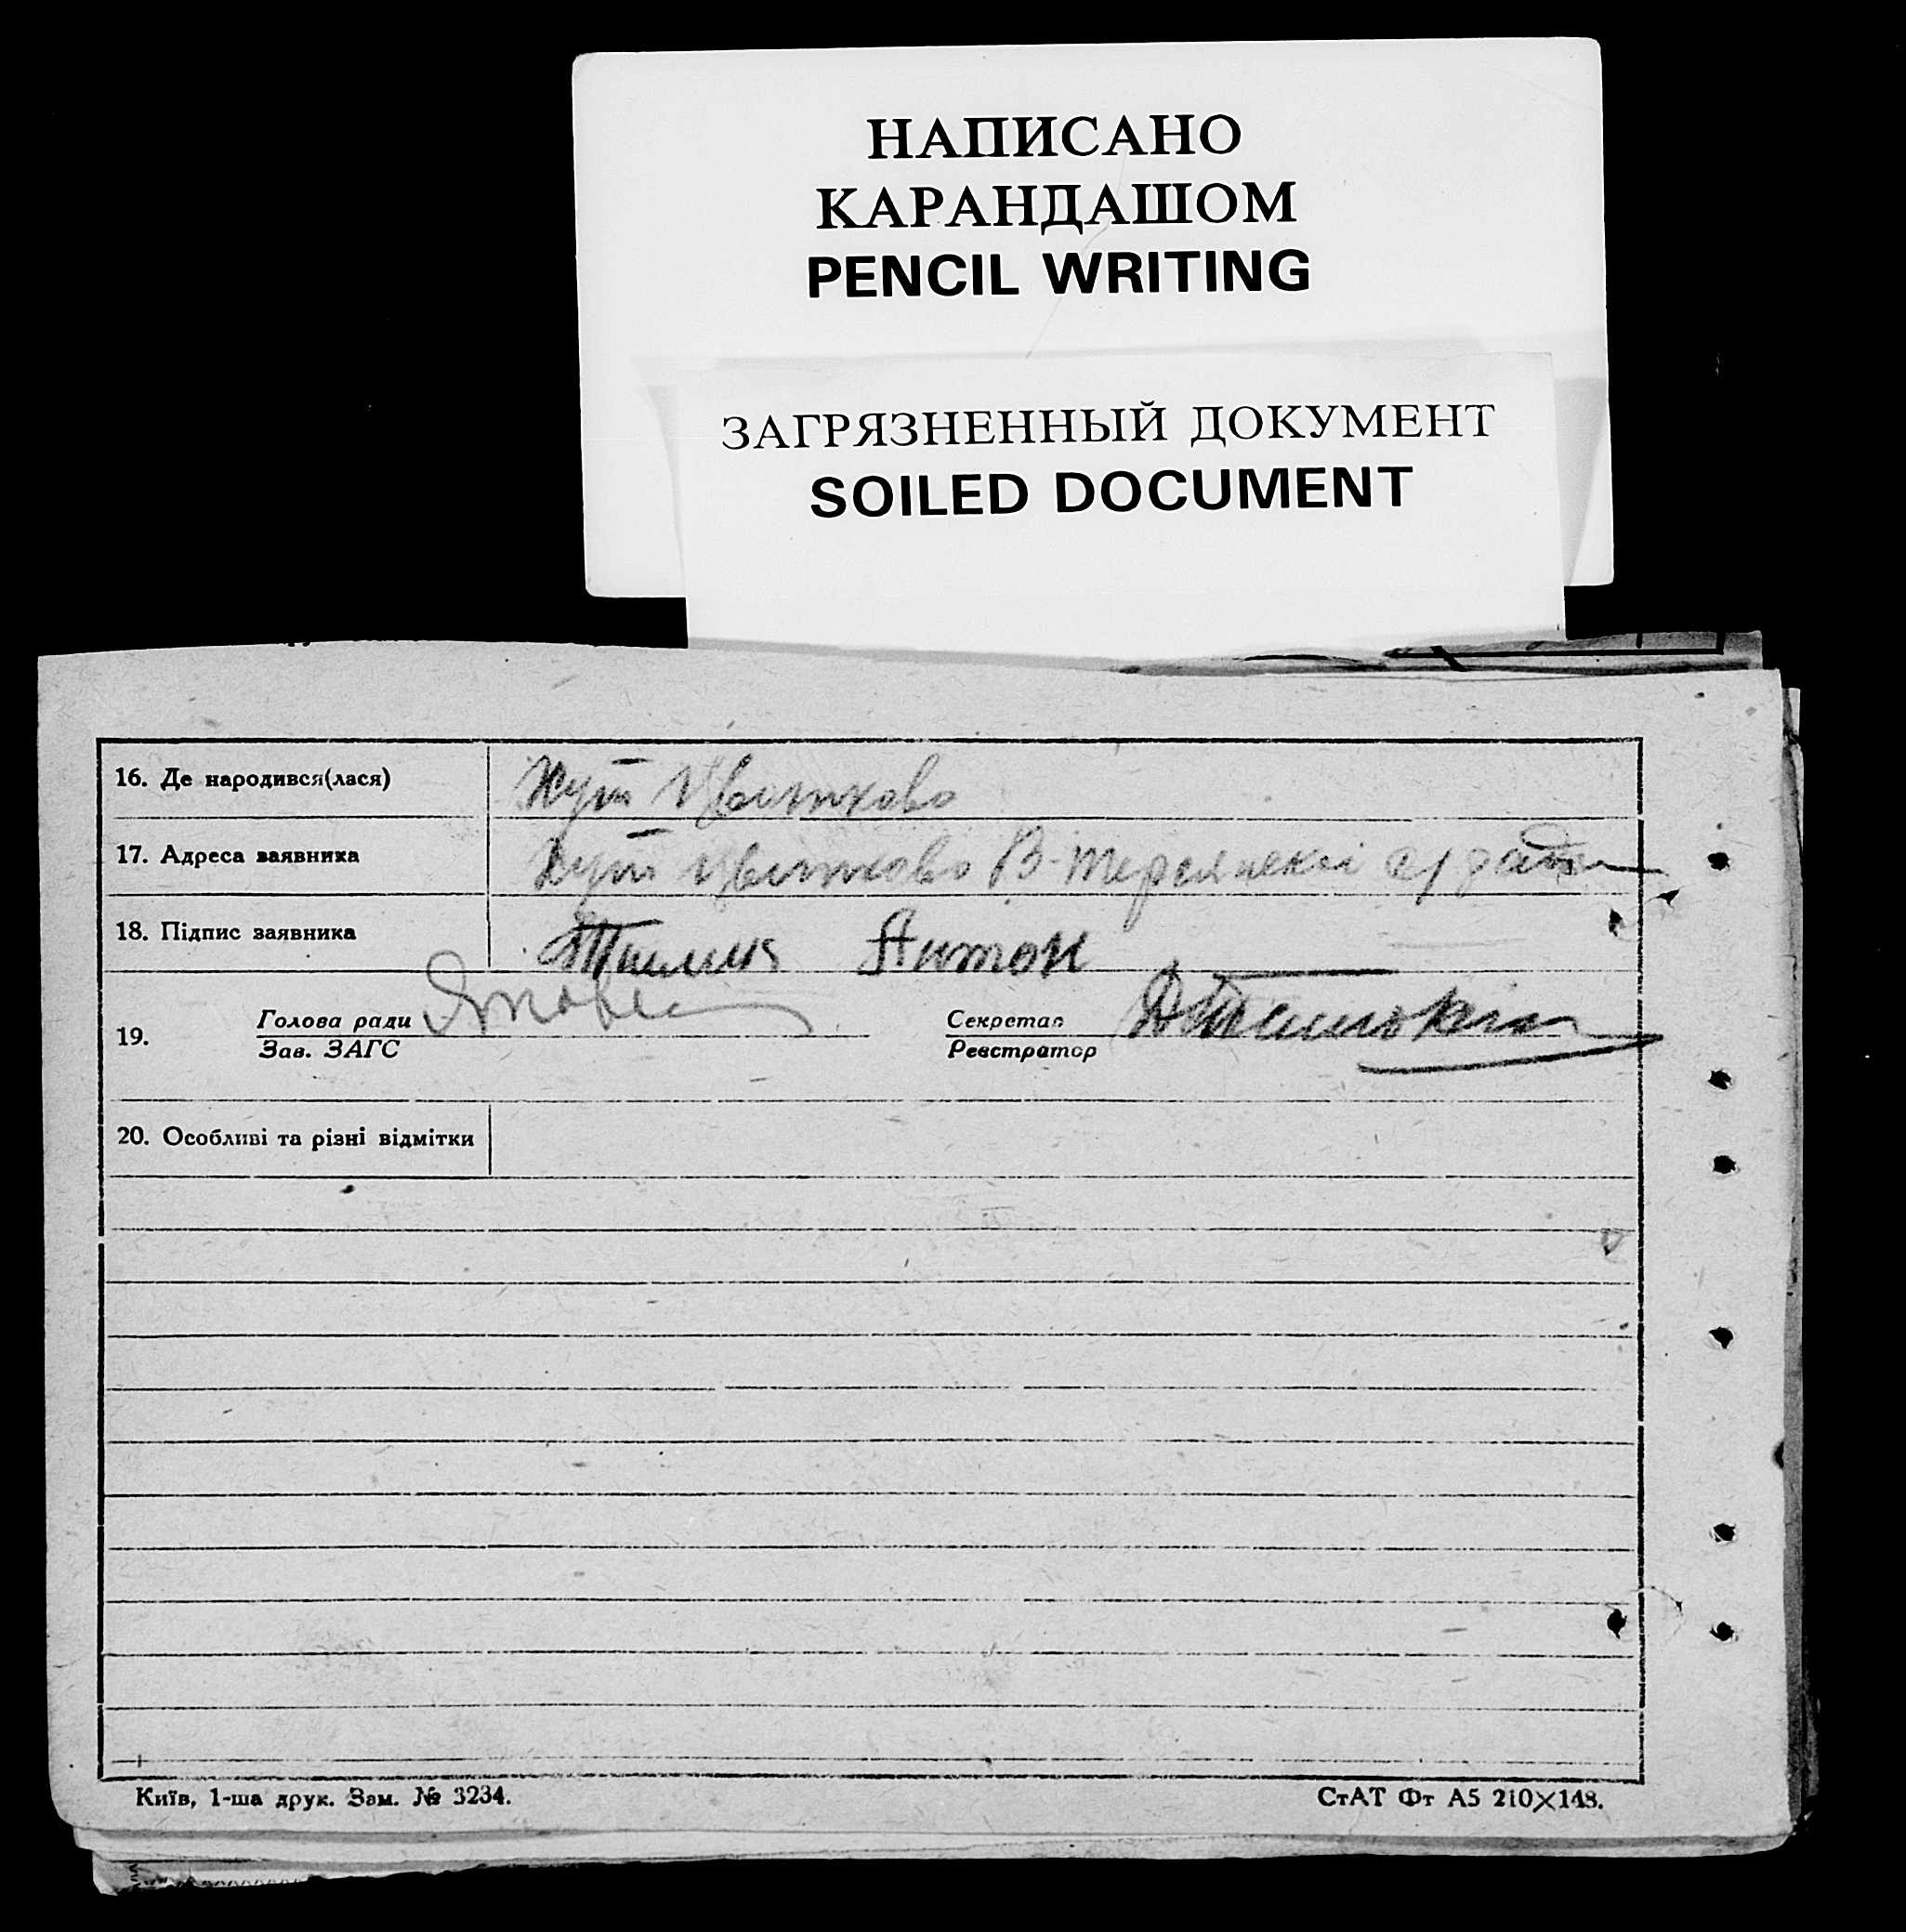 НАПИСАНО
КАРАНДАШОМ
PENCIL WRITING
ЗАГРЯЗНЕННЫЙ ДОКУМЕНТ
SOILED DOCUMENT
16. Де народився(лася) Хут
17. Адреса заявника Хут
18. Підпис заявника Антон
19. Голова ради Секретар
Зав. ЗАГС Реєстратор
20. Особливі та різні відмітки
Київ, 1-ша друк. Зам. № 3234. СтАТ Фт А5 210×148.